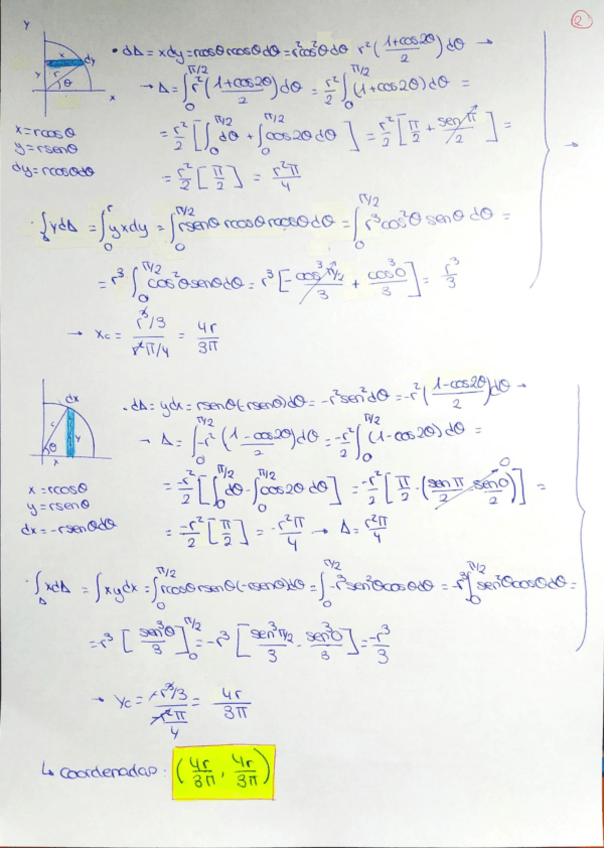 ②
y
x dy
y r θ
x
• dA = x dy = rcosθ rcosθ dθ = r²cos²θ dθ r² (1+cos2θ / 2) dθ →
→ A = ∫₀^{π/2} r² (1+cos2θ / 2) dθ = r²/2 ∫₀^{π/2} (1+cos2θ) dθ =
x = rcosθ
y = rsenθ
dy = rcosθdθ
= r²/2 [∫₀^{π/2} dθ + ∫₀^{π/2} cos2θ dθ] = r²/2 [π/2 + senπ/2] = →
= r²/2 [π/2] = r²π/4
· ∫_A ydA = ∫₀^r yxdy = ∫₀^{π/2} rsenθ rcosθ rcosθ dθ = ∫₀^{π/2} r³cos²θ senθ dθ =
= r³ ∫₀^{π/2} cos²θ senθ dθ = r³ [-cos³π/2 / 3 + cos³0 / 3] = r³/3
→ xc = (r³/3) / (r²π/4) = 4r/3π
dx
r y
θ
x
• dA = ydx = rsenθ(-rsenθ)dθ = -r²sen²dθ = -r² (1-cos2θ / 2) dθ →
→ A = ∫₀^{π/2} -r² (1-cos2θ / 2) dθ = -r²/2 ∫₀^{π/2} (1-cos2θ) dθ =
x = rcosθ
y = rsenθ
dx = -rsenθdθ
= -r²/2 [∫₀^{π/2} dθ - ∫₀^{π/2} cos2θ dθ] = -r²/2 [π/2 · (senπ/2 - sen0/2) 0] =
= -r²/2 [π/2] = -r²π/4 → A = r²π/4
· ∫_A xdA = ∫ xydx = ∫₀^{π/2} rcosθ rsenθ (-rsenθ) dθ = ∫₀^{π/2} -r³sen²θcosθ dθ = -r³ ∫₀^{π/2} sen²θcosθ dθ =
= -r³ [sen³θ / 3]₀^{π/2} = -r³ [sen³π/2 / 3 - sen³0 / 3] = -r³/3
→ yc = (-r³/3) / (-r²π/4) = 4r/3π
↳ coordenadas: (4r/3π, 4r/3π)